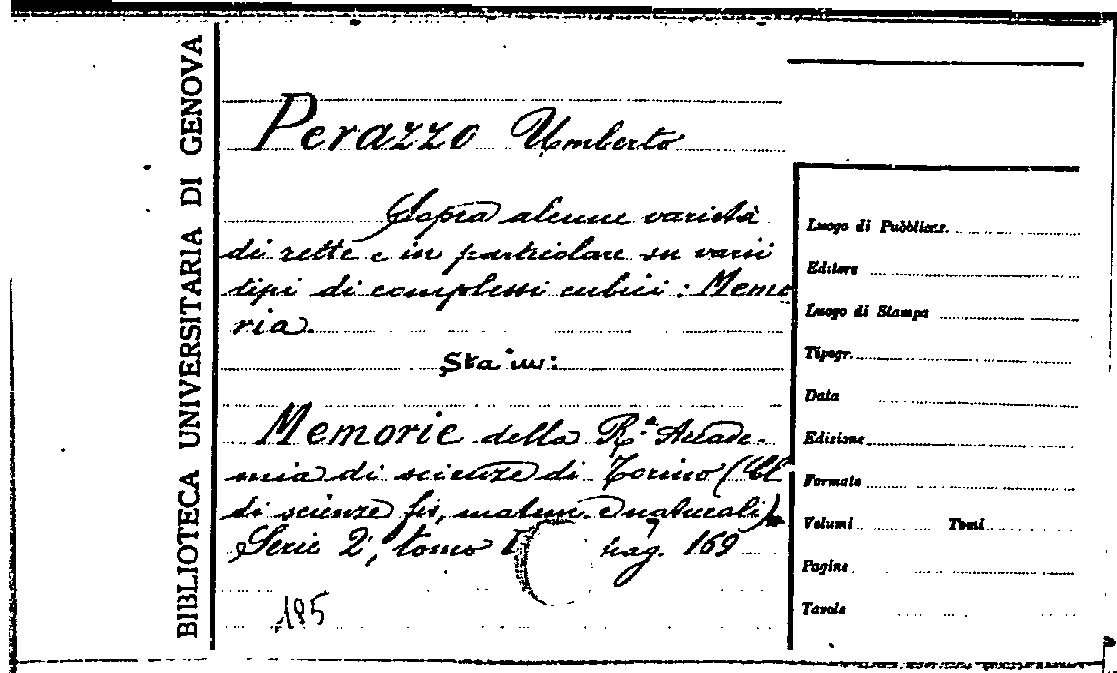 BIBLIOTECA UNIVERSITARIA DI GENOVA
Perazzo Umberto
Sopra alcune varietà
di rette e in particolare su varii
tipi di complessi cubici: Memo
ria.
Sta in:
Memorie della R.a Accade-
mia di scienze di Torino (Cl
di scienze fis, matem. e naturali),
Serie 2, tomo pag. 169
185
Luogo di Pubblicaz.
Editore
Luogo di Stampa
Tipogr.
Data
Edizione
Formato
Volumi Tomi
Pagine
Tavole